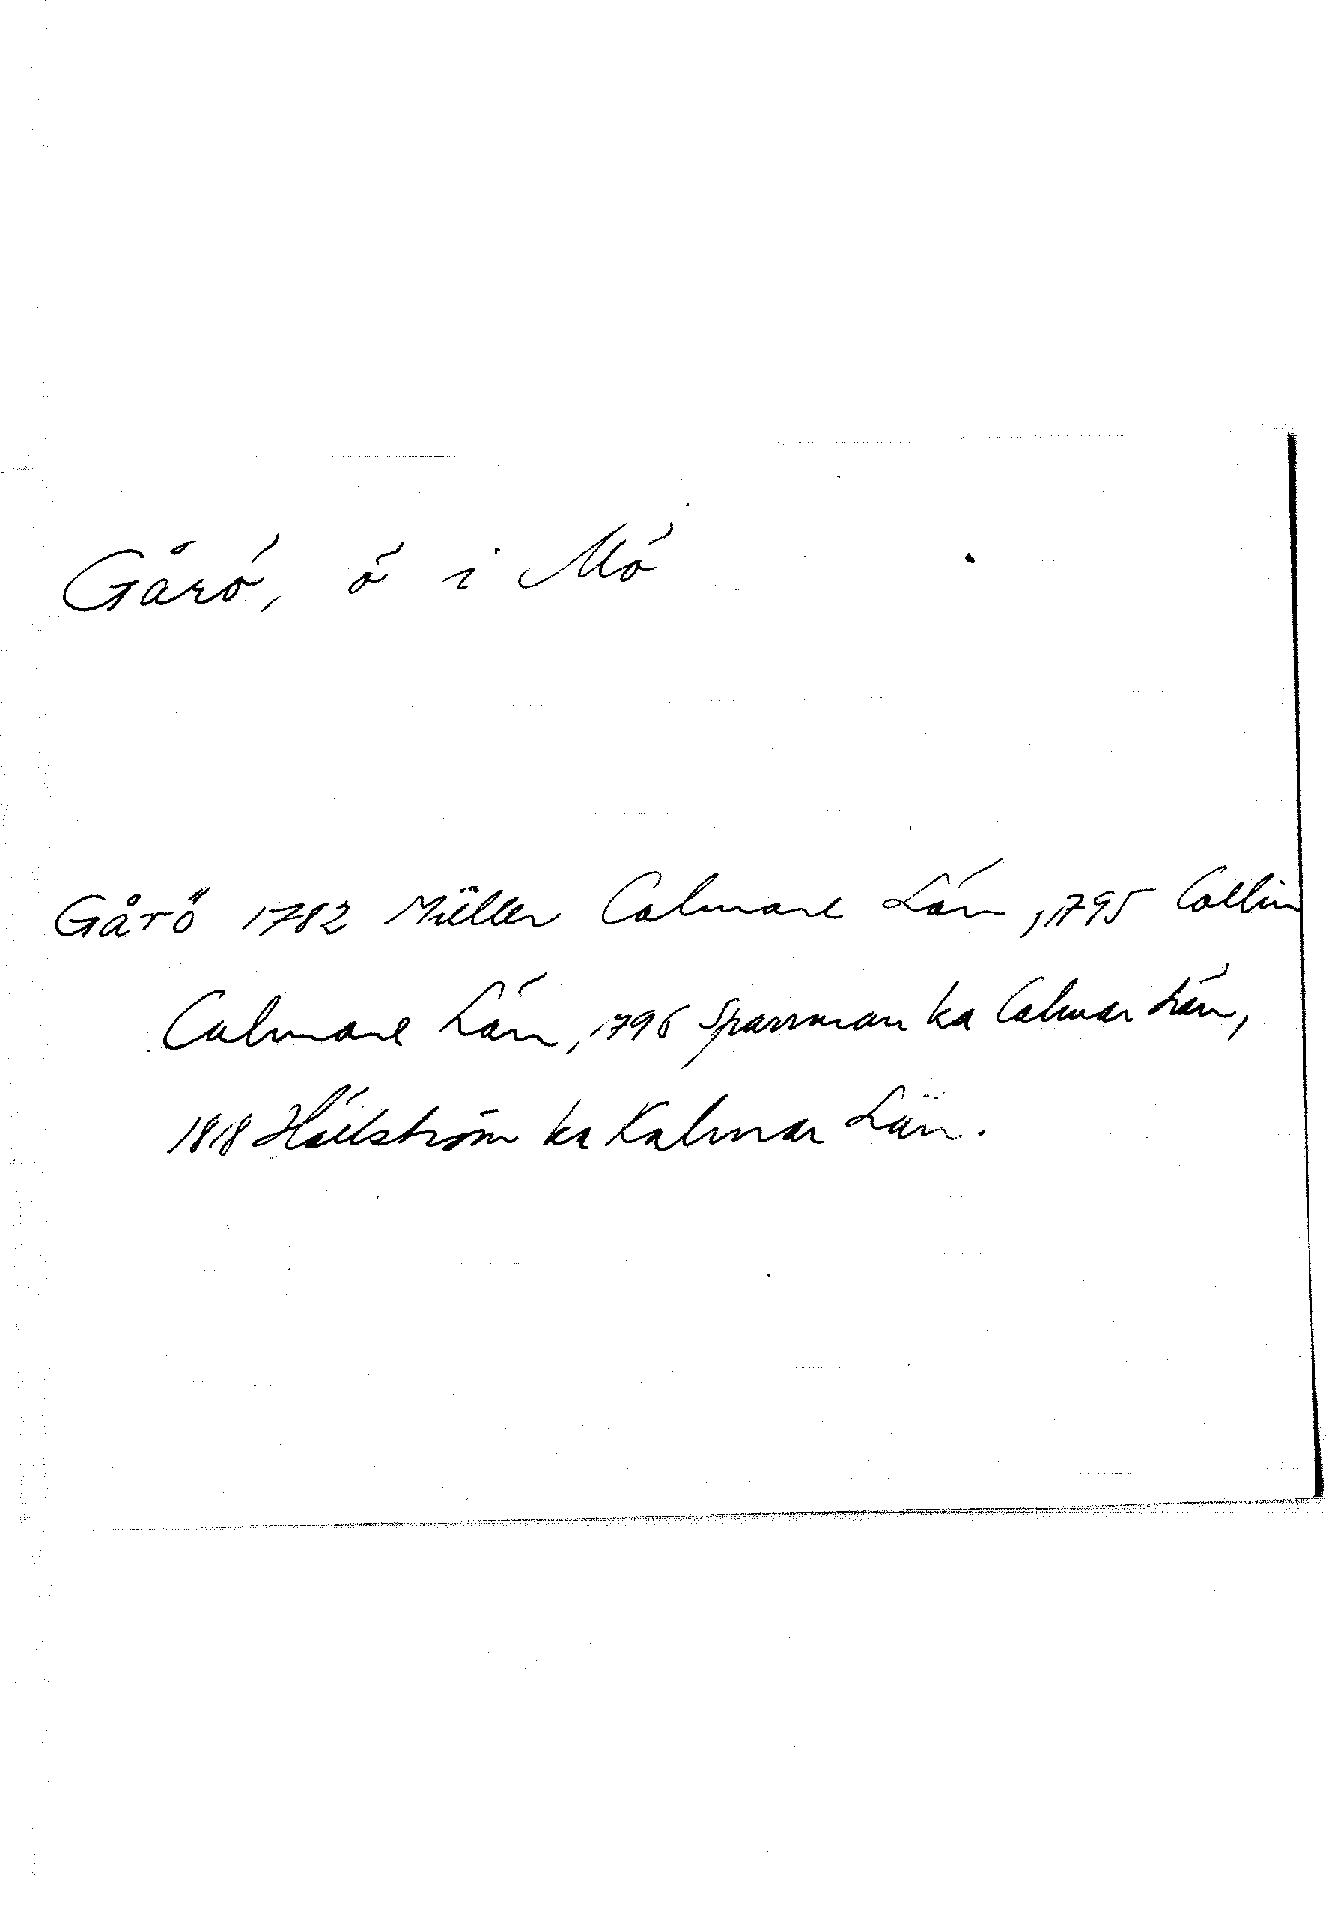 Gårö, ö i Mö
Gårö 1782 Müller Calmare Län, 1795 Collin
Calmare Län, 1796 Sparrman ka Calmar Län,
1818 Hällström ka Kalmar Län.